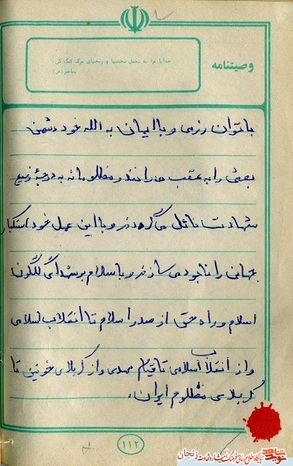 وصیتنامه
خدایا مرا به تحمل سختیها و رنجهای مرگ کمک کن
با توان رزمی و با ایمان به الله خود دشمن
بعثی را به عقب میرانند و مظلومانه به درجهٔ رفیع
شهادت نائل میگردند و با این عمل خود استکبار
جهانی را نابود می سازند و با سلام بر شهدای گلگون
اسلام و راه حق از صدر اسلام تا انقلاب اسلامی
و از انقلاب اسلامی تا قیام مهدی و از کربلای خونین تا
کربلای مظلوم ایران.
۱۱۲
زنجان